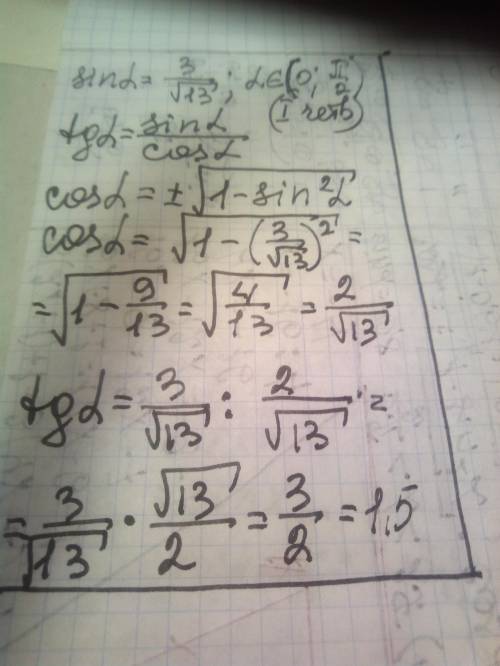 sinα = 3/√13; α∈(0; π/2)
(I четв)
tgα = sinα/cosα
cosα = ±√(1 - sin²α)
cosα = √(1 - (3/√13)²) =
= √(1 - 9/13) = √(4/13) = 2/√13
tgα = 3/√13 : 2/√13 =
= 3/√13 · √13/2 = 3/2 = 1,5